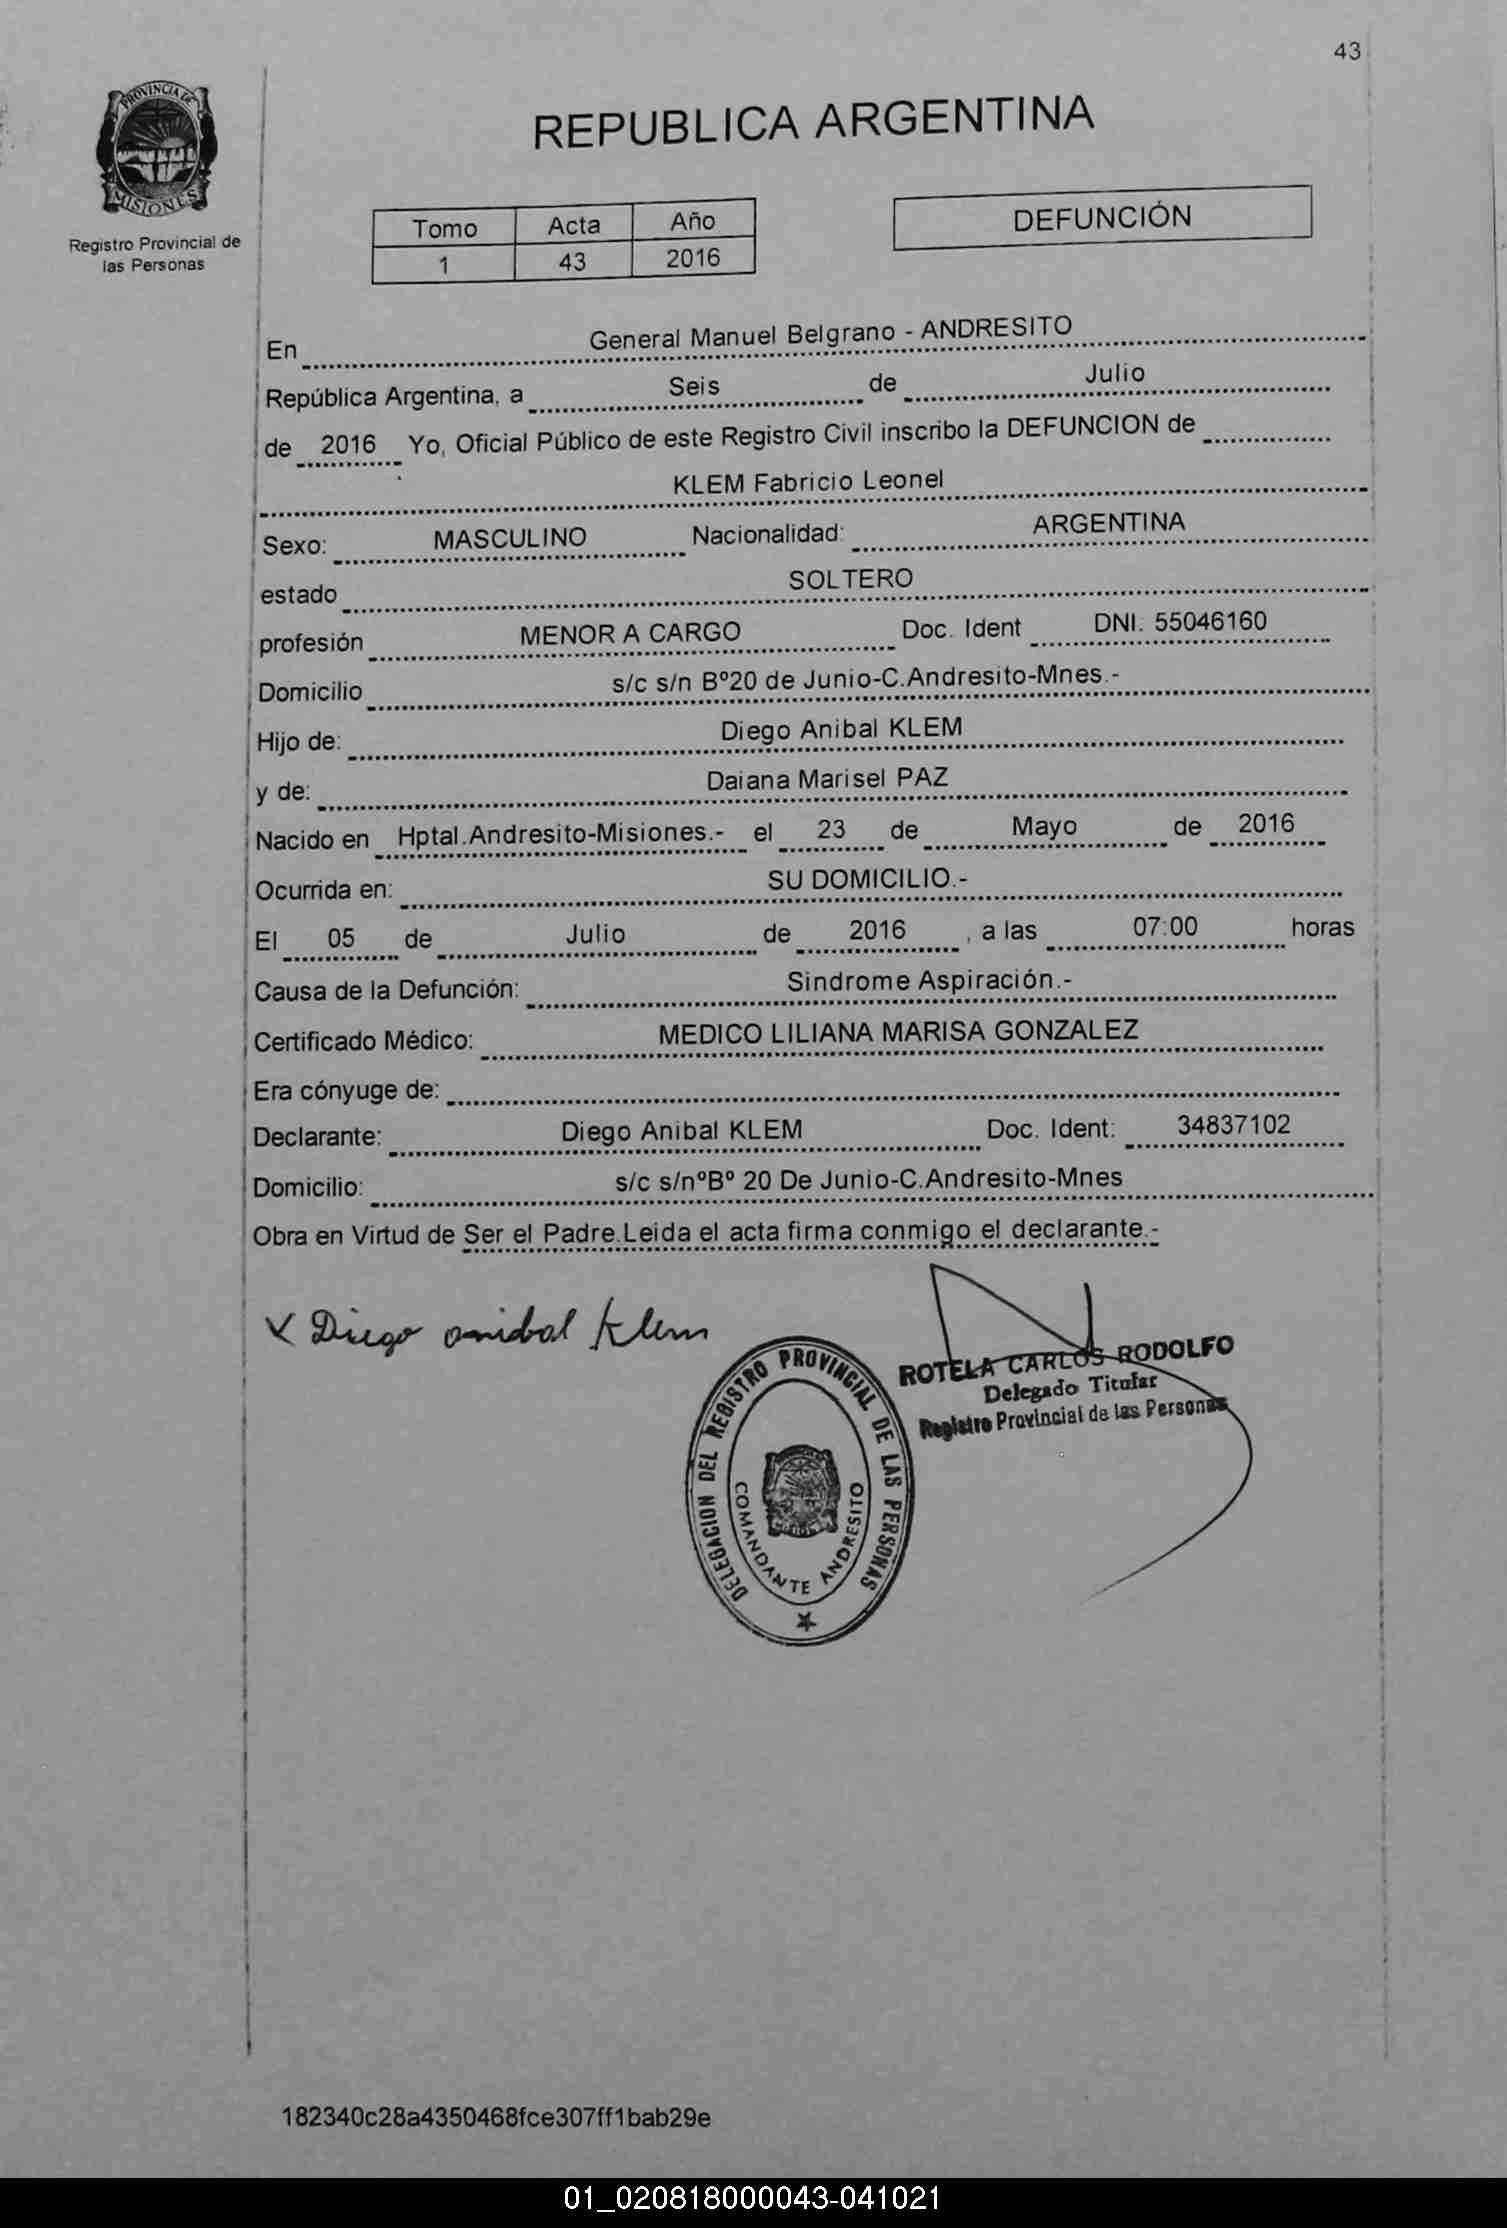 43
PROVINCIA DE
MISIONES
Registro Provincial de
las Personas
REPUBLICA ARGENTINA
Tomo Acta Año
1 43 2016
DEFUNCIÓN
En General Manuel Belgrano - ANDRESITO
República Argentina, a Seis de Julio
de 2016 Yo, Oficial Público de este Registro Civil inscribo la DEFUNCION de
KLEM Fabricio Leonel
Sexo: MASCULINO Nacionalidad: ARGENTINA
estado SOLTERO
profesión MENOR A CARGO Doc. Ident DNI. 55046160
Domicilio s/c s/n Bº20 de Junio-C.Andresito-Mnes.-
Hijo de: Diego Anibal KLEM
y de: Daiana Marisel PAZ
Nacido en Hptal.Andresito-Misiones.- el 23 de Mayo de 2016
Ocurrida en: SU DOMICILIO.-
El 05 de Julio de 2016 , a las 07:00 horas
Causa de la Defunción: Sindrome Aspiración.-
Certificado Médico: MEDICO LILIANA MARISA GONZALEZ
Era cónyuge de:
Declarante: Diego Anibal KLEM Doc. Ident: 34837102
Domicilio: s/c s/nºBº 20 De Junio-C.Andresito-Mnes
Obra en Virtud de Ser el Padre.Leida el acta firma conmigo el declarante.-
X Diego anibal Klem
ROTELA CARLOS RODOLFO
Delegado Titular
Registro Provincial de las Personas
DELEGACION DEL REGISTRO PROVINCIAL DE LAS PERSONAS
COMANDANTE ANDRESITO
182340c28a4350468fce307ff1bab29e
01_020818000043-041021